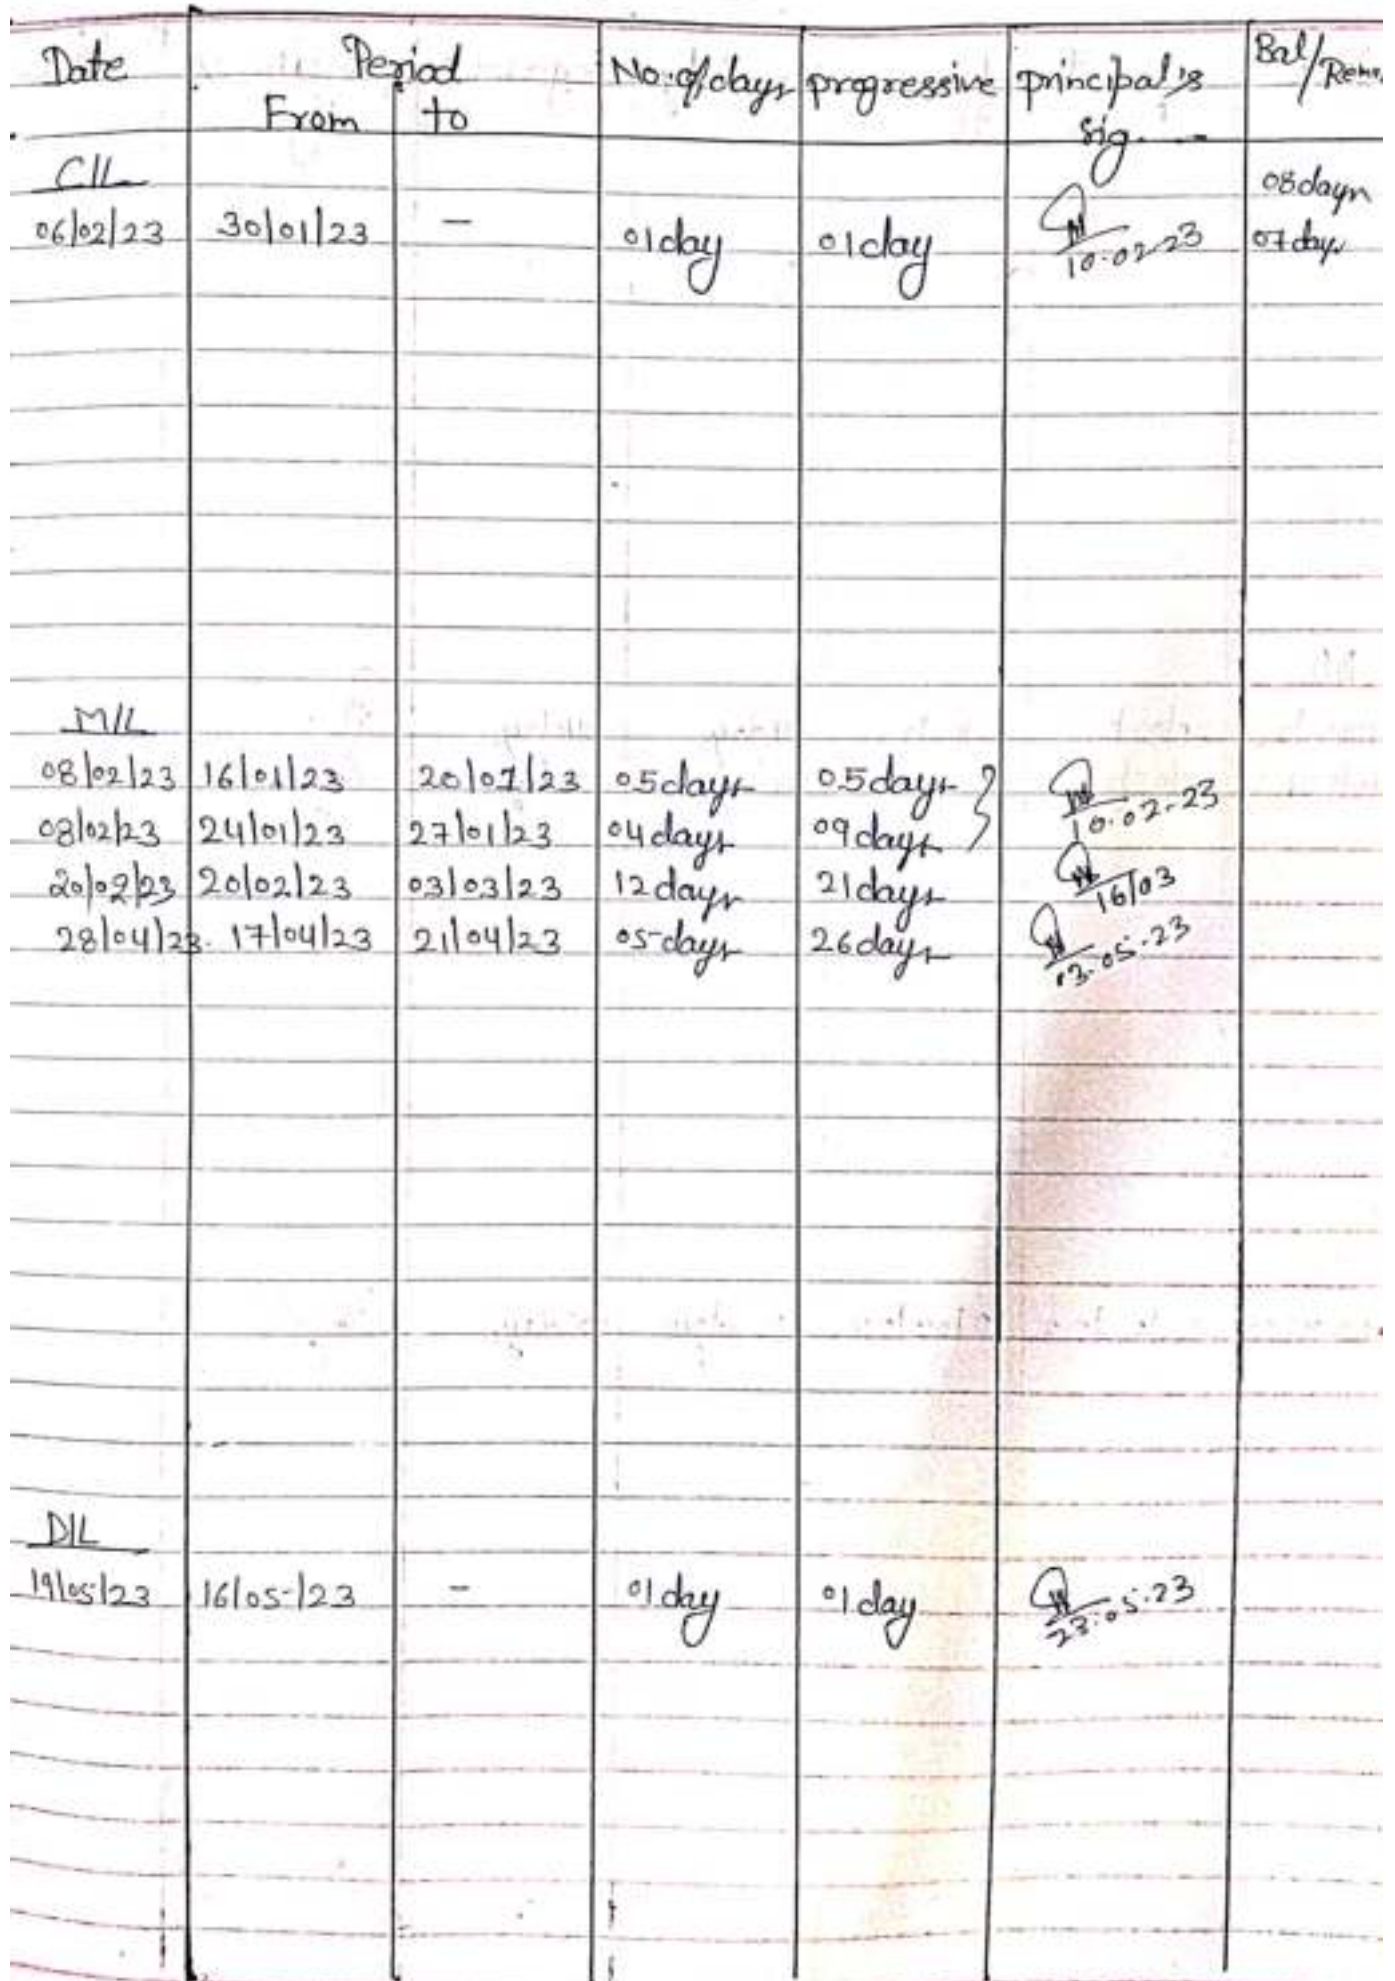 Date Period No. of days progressive principal's Bal/Rem.
From to sig.
C/L 08 days
06/02/23 30/01/23 - 01 day 01 day 10.02.23 07 days
M/L
08/02/23 16/01/23 20/01/23 05 days 05 days 10.02.23
08/02/23 24/01/23 27/01/23 04 days 09 days
20/02/23 20/02/23 03/03/23 12 days 21 days 16/03
28/04/23. 17/04/23 21/04/23 05 days 26 days 03.05.23
D/L
19/05/23 16/05/23 - 01 day 01 day 23.05.23